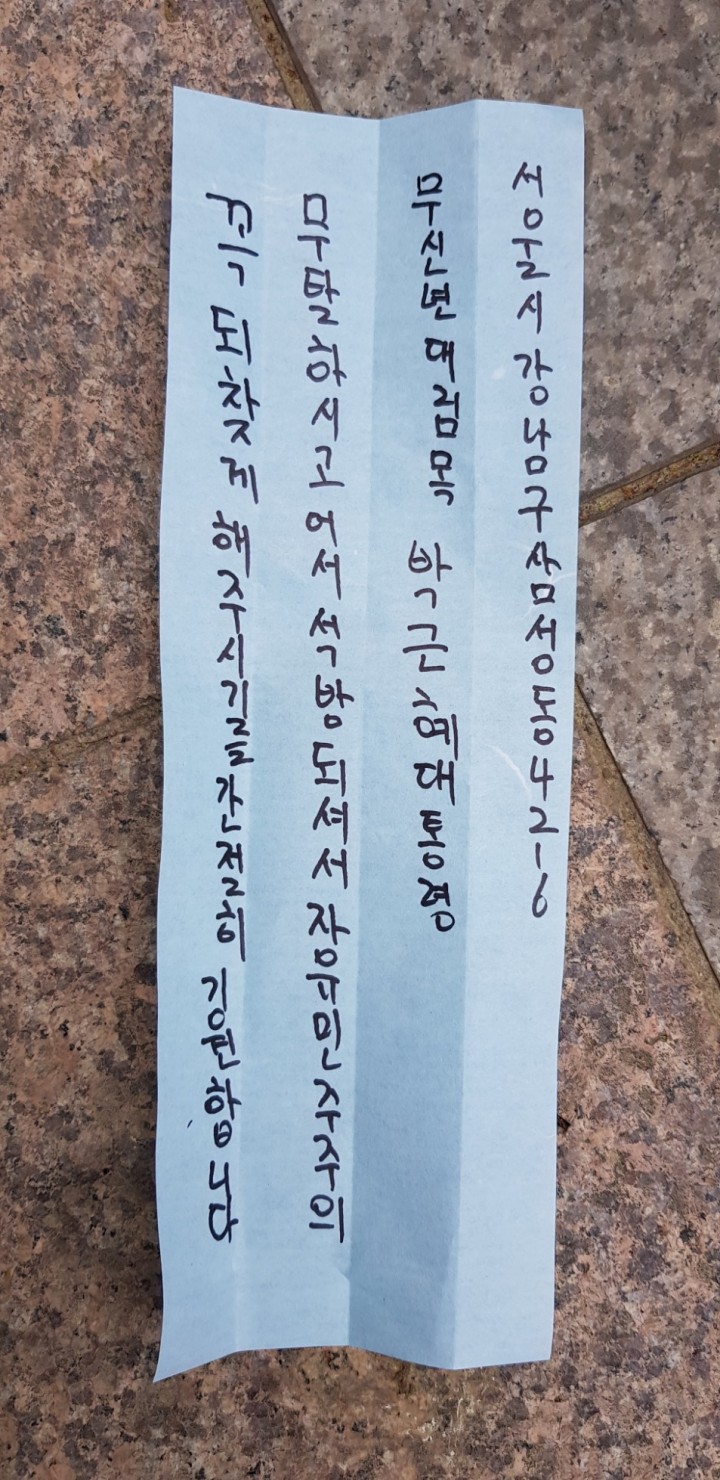 서울시 강남구 삼성동 42-6
무신년 대림목 박근혜 대통령
무탈하시고 어서 석방되셔서 자유민주주의
꼭 되찾게 해주시길 간절히 기원합니다